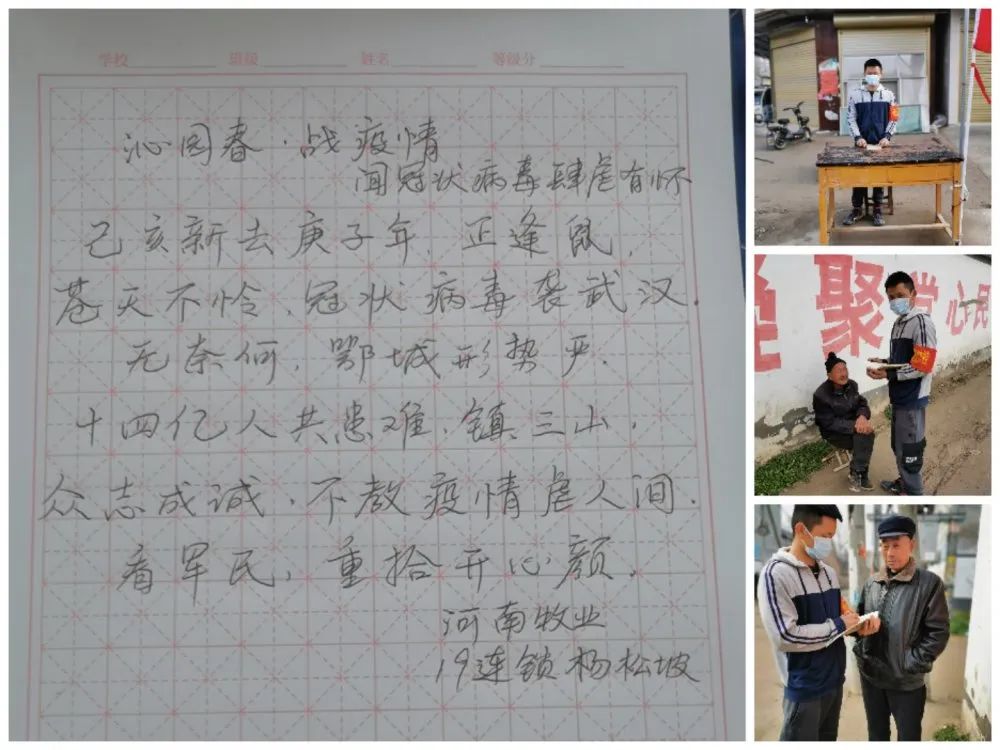 学校 班级 姓名 等级分
沁园春·战疫情
闻冠状病毒肆虐有怀
己亥新去庚子年，正逢鼠，
苍天不怜，冠状病毒袭武汉．
无奈何，鄂城形势严．
十四亿人共患难，镇三山，
众志成诚，不教疫情虐人间．
看军民，重拾开心颜．
河南牧业
19连锁杨松坡
聚 党心民